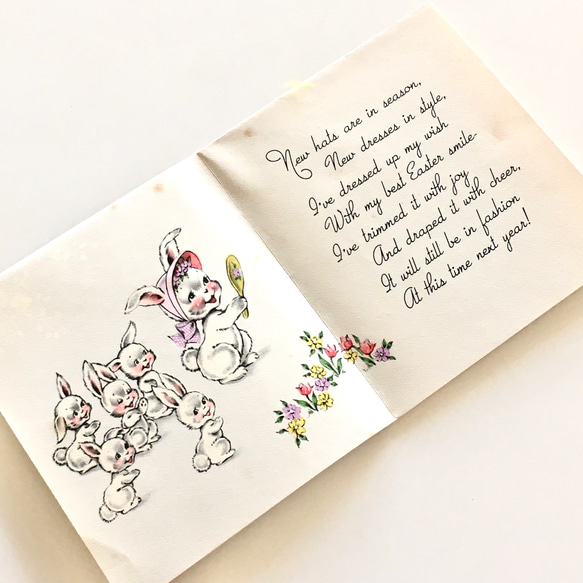 New hats are in season,
New dresses in style,
I've dressed up my wish
With my best Easter smile-
I've trimmed it with joy
And draped it with cheer,
It will still be in fashion
At this time next year!